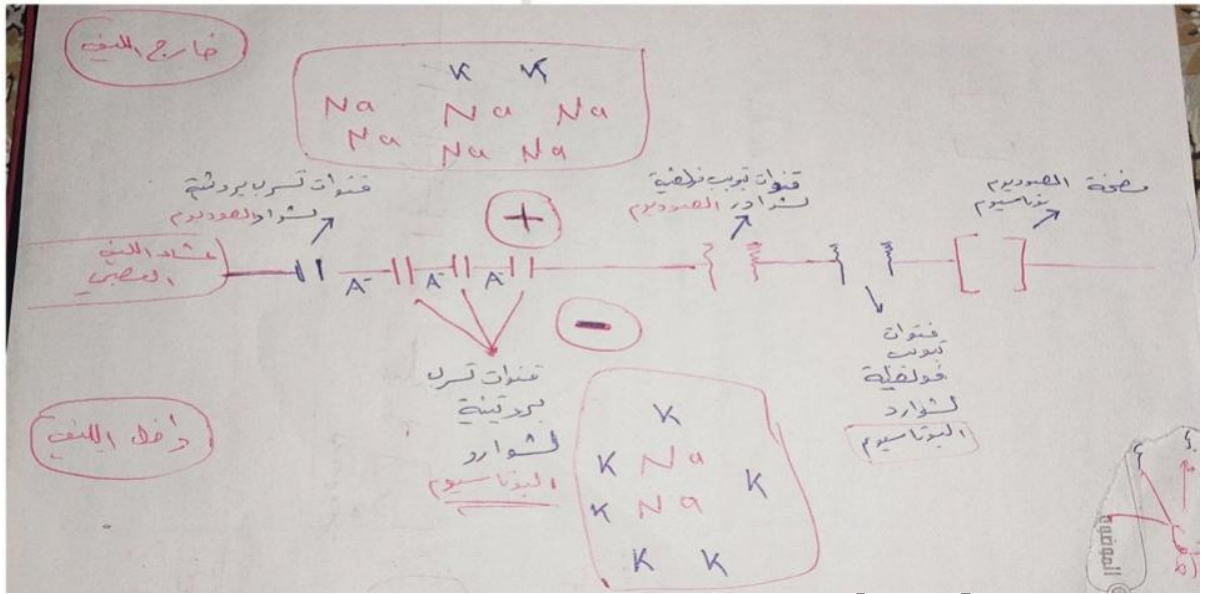 خارج الليف
K K
Na Na Na
Na Na Na
قنوات تسرب بروتينية
لشوارد الصوديوم
+
قنوات تبويب فولطية
لشوارد الصوديوم
مضخة الصوديوم
بوتاسيوم
غشاء الليف
العصبي
A⁻ A⁻ A⁻
−
قنوات تسرب
بروتينية
لشوارد
البوتاسيوم
قنوات
تبويب
فولطية
لشوارد
البوتاسيوم
داخل الليف
K
K Na
K
K Na
K K
الموضوع